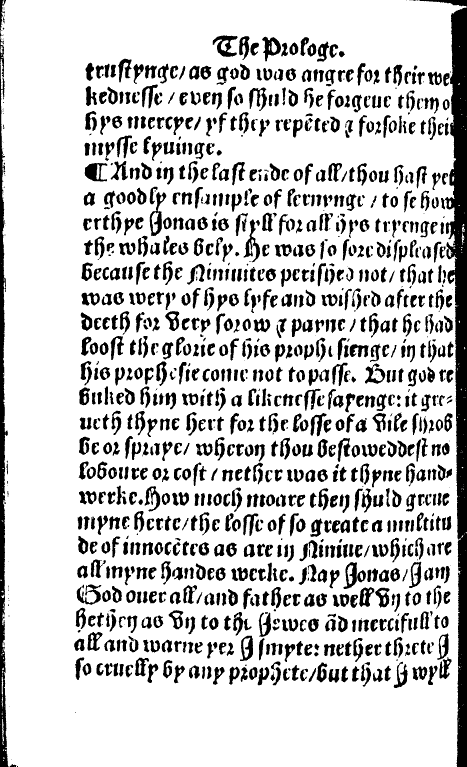 The Prologe.
trustynge/ as god was angre for their we
kednesse / even so shuld he forgeue them o
hys mercye/ yf they repēted ⁊ forsoke thei
mysse lyuinge.
¶ And in the last ende of all/ thou hast yet
a goodly ensample of lernynge / to se how
erthye Jonas is styll for all hys tryenge in
the whales bely. He was so sore displeased
because the Niniuites perished not/ that he
was wery of hys lyfe and wished after the
deeth for very sorow ⁊ payne / that he had
loost the glorie of his prophesienge/ in that
his prophesie come not to passe. But god re
buked him with a likenesse sayenge: it gre⸗
ueth thyne hert for the losse of a vile shrob
be or spraye/ wheron thou bestoweddest no
laboure or cost / nether was it thyne hand⸗
werke. How moch moare then shuld greue
myne herte/ the losse of so greate a multitu
de of innocētes as are in Niniue/ which are
all myne handes werke. Nay Jonas/ J am
God ouer all/ and father as well vn to the
hethen as vn to the Jewes ād mercifull to
all and warne yer J smyte: nether threte J
so cruelly by any prophete/ but that J wyll